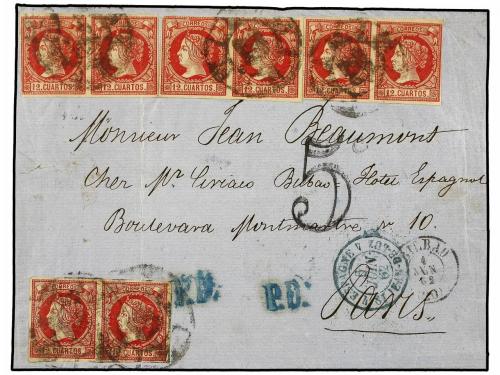 CORREOS CORREOS CORREOS CORREOS CORREOS CORREOS
12 CUARTOS 12 CUARTOS 12 CUARTOS 12 CUARTOS 12 CUARTOS 12 CUARTOS
Monsieur Jean Beaumont
5
Cher Mr. Ciriaco Bilbao - Hotel Espagnol
Boulevard Montmartre nº 10.
BILBAO
P.D. P.D.
Paris.
12 CUARTOS 12 CUARTOS